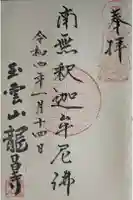 奉拝
南無釈迦牟尼佛
令和四年一月十四日
玉雲山龍昌寺